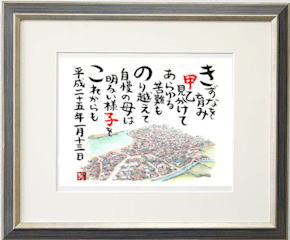 きずなを
育み
甲乙
見分けて
あらゆる
苦難も
のり越えて
自慢の母は
明るい様子を
これからも
平成二十五年一月十三日